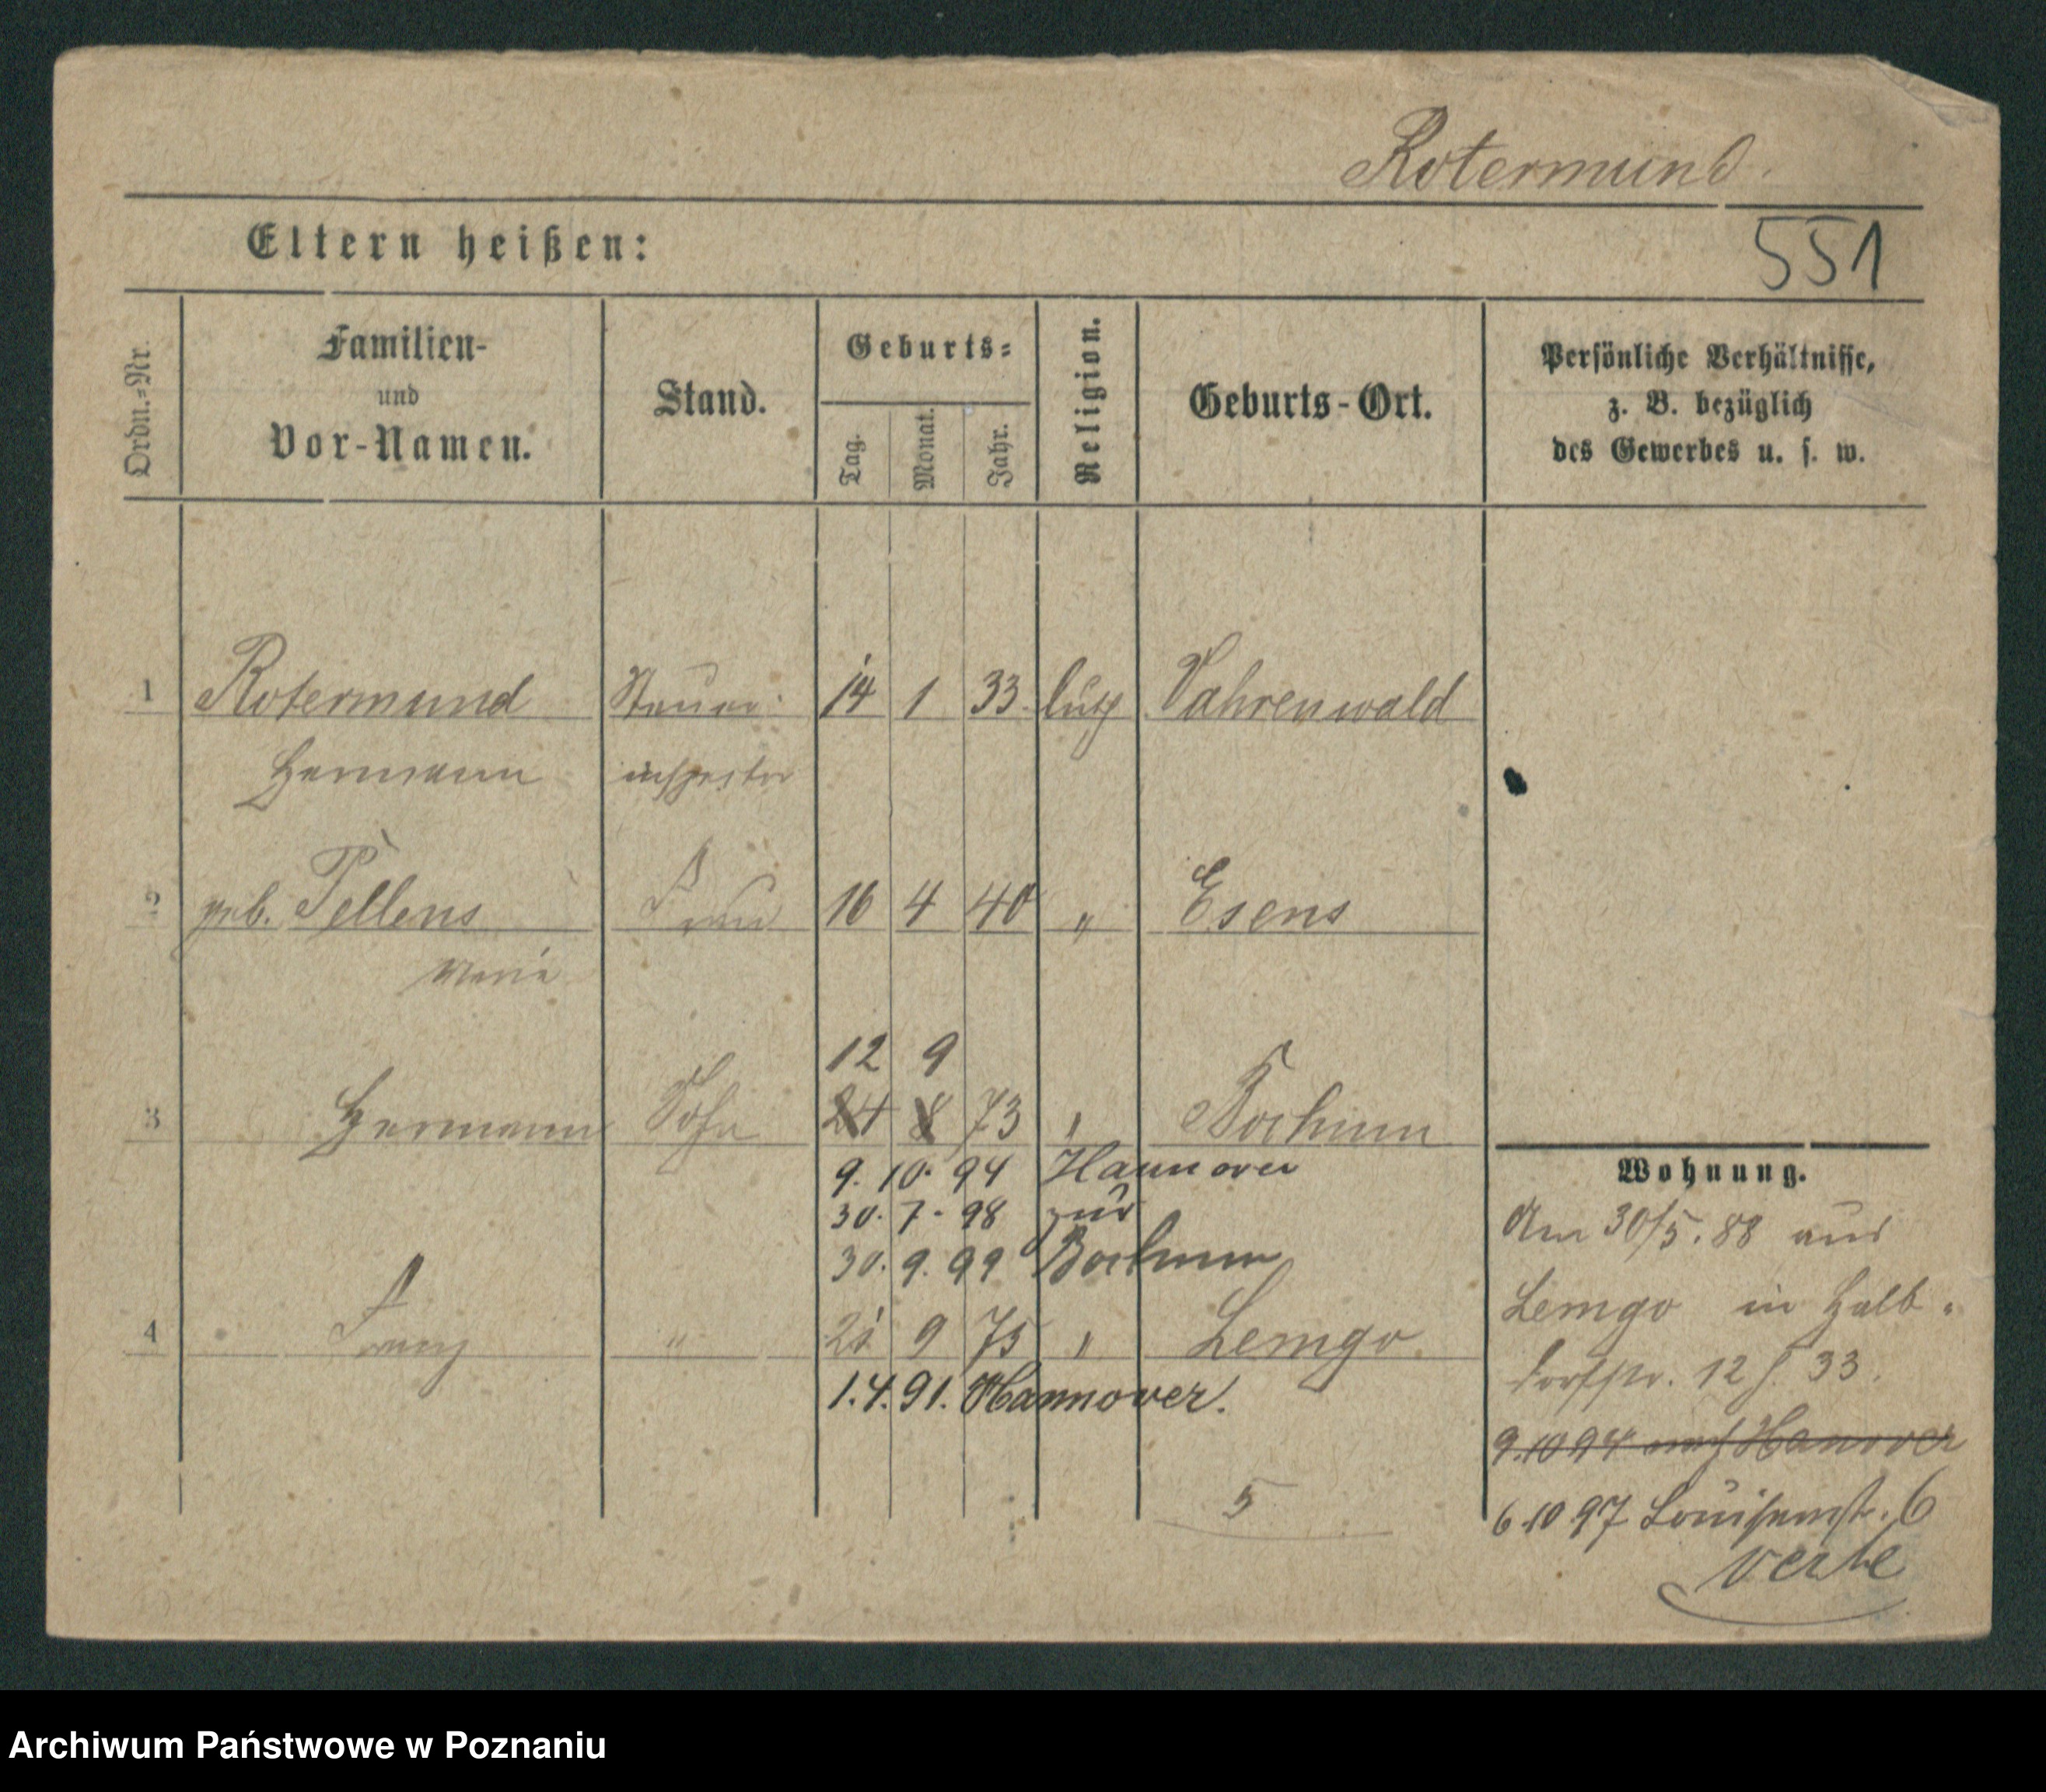 Rotermund.
Eltern heißen:
551
Ordn.=Nr.
Familien-
und
Vor-Namen.
Stand.
Geburts=
Tag.
Monat.
Jahr.
Religion.
Geburts-Ort.
Persönliche Verhältnisse,
z. B. bezüglich
des Gewerbes u. s. w.
1 Rotermund Steuer 14 1 33 luth Vahrenwald
Hermann inspector
2 geb. Tellens Frau 16 4 40 " Esens
Maria
12 9
3 Hermann Sohn 24 8 73 " Bochum
9. 10. 94 Hannover
30. 7. 98 zur
30. 9. 99 Bochum
4 Franz " 21 9 75 " Lemgo
1. 4. 91. Hannover.
5
Wohnung.
Am 30/5. 88 aus
Lemgo in Halb-
dorfstr. 12 33.
9.10 94 nach Hanover
6.10 97 Louisenstr. 6